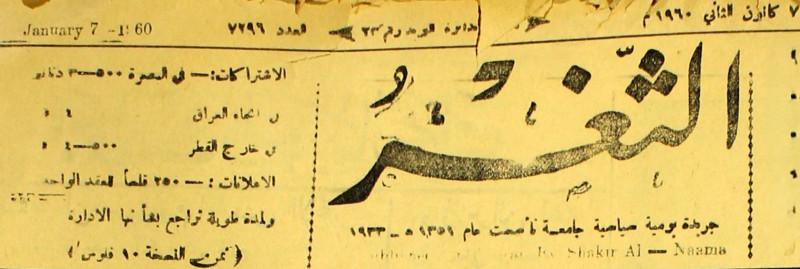 ٧ كانون الثاني ١٩٦٠ م
العدد ٧٢٩٦
January 7 - 1960
الثغر
جريدة يومية سياسية جامعة تأسست عام ١٣٥١ هـ - ١٩٣٣
by Shakir Al — Naama
الاشتراكات: — في البصرة ٥٠٠—٣ دنانير
العراق ٤ »
في خارج القطر ٥٠٠—٤ »
الاعلانات: — ٢٥٠ فلساً للعقد الواحد
ولمدة طويلة تراجع بشأنها الادارة
( ثمن النسخة ١٠ فلوس )